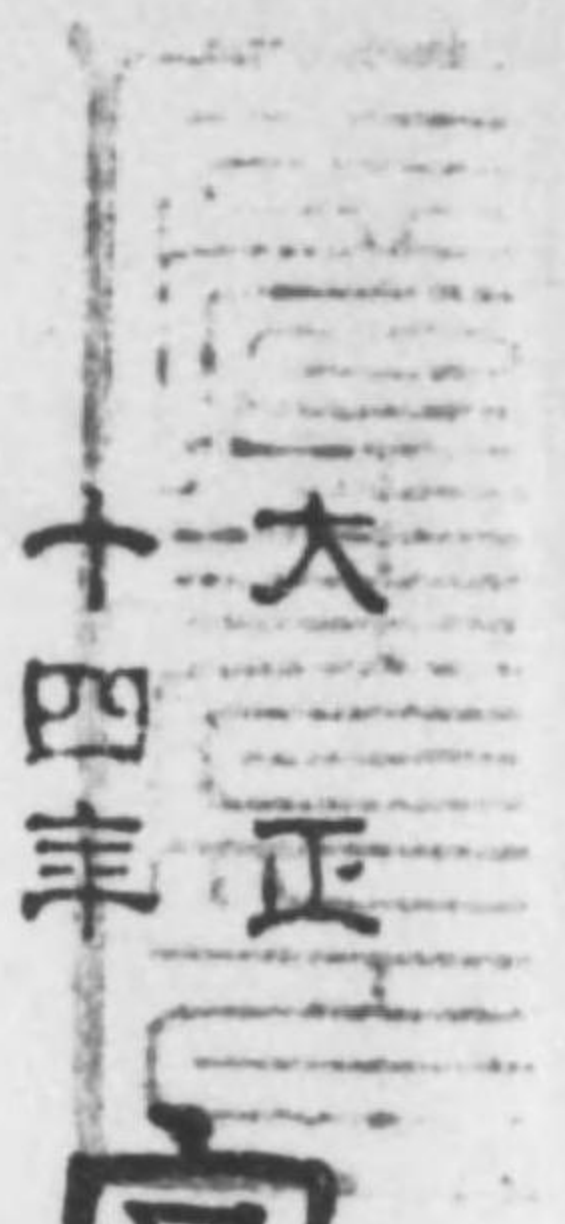 大正
十四年